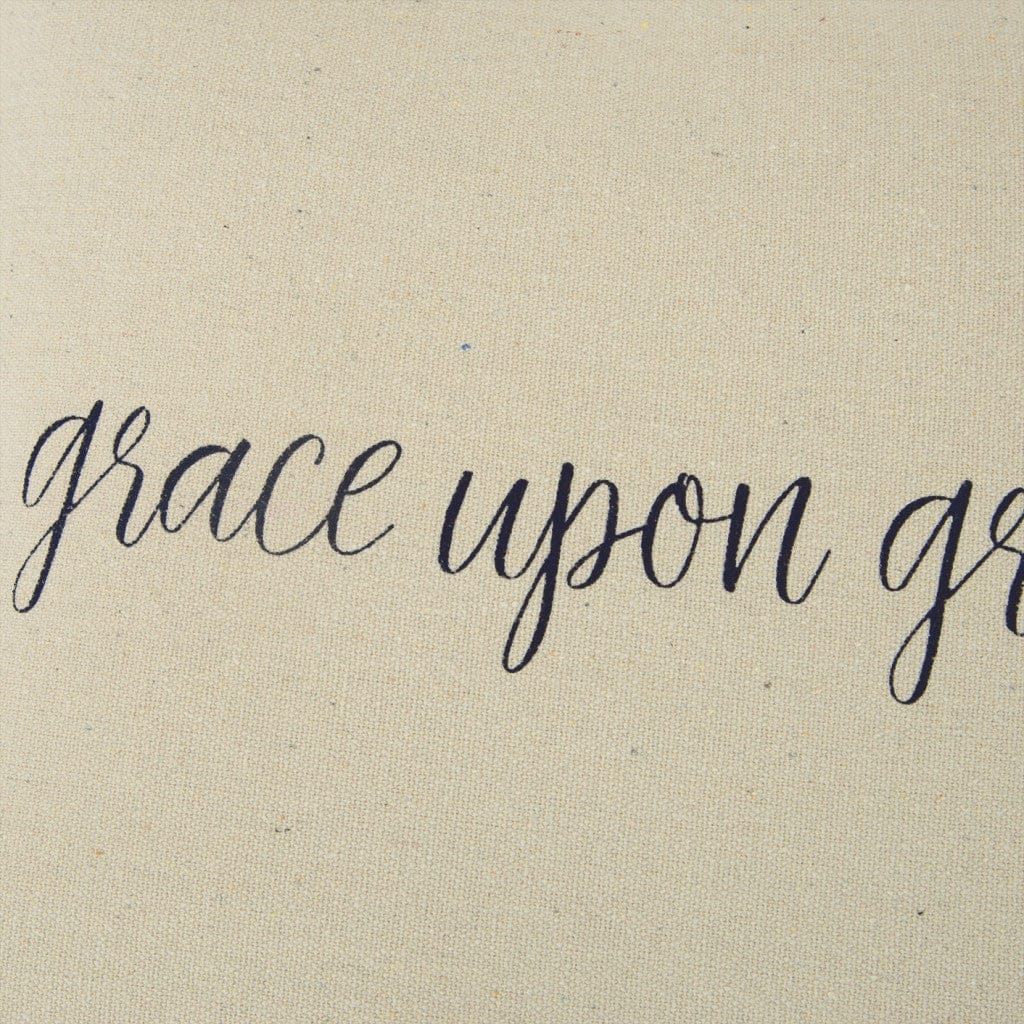 grace upon gr